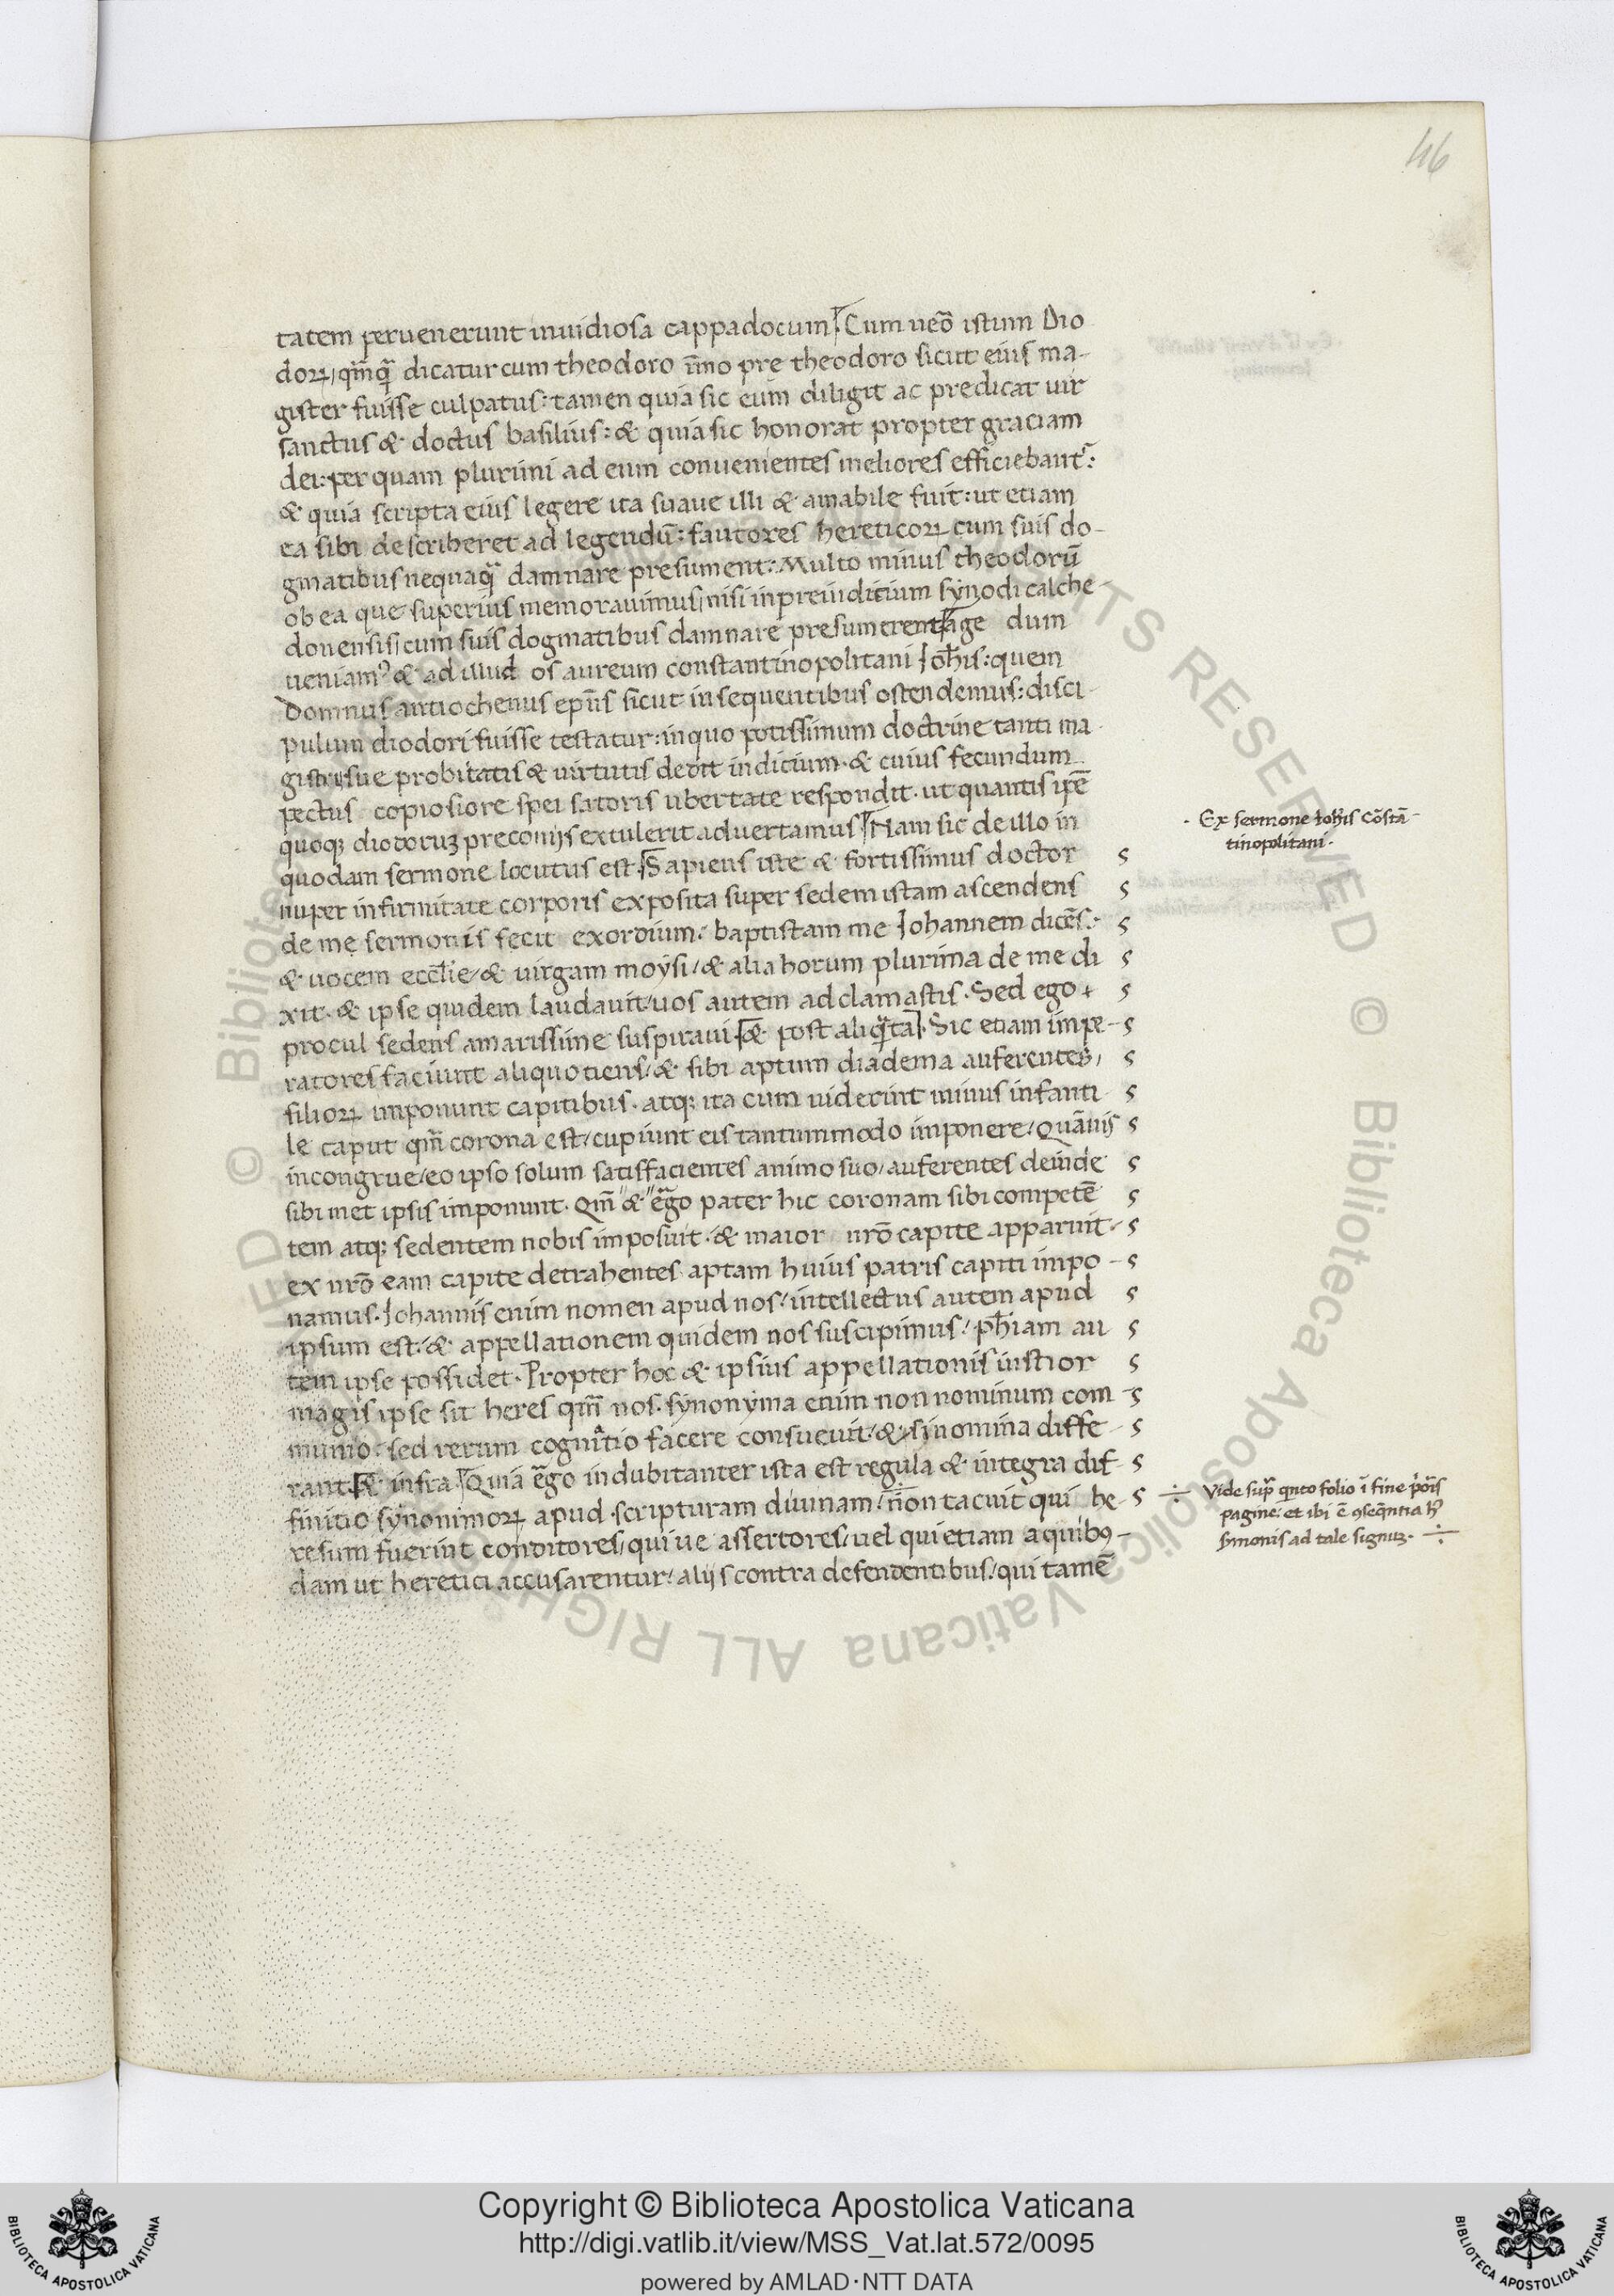 46
tatem peruenerunt inuidiosa cappadocum Cum ueō istum Dio
doꝝ, qm̄qͣ dicatur cum theodoro īmo pre theodoro sicut eius ma-
gister fuisse culpatus: tamen quia sic eum diligit ac predicat uir
sanctus & doctus basilius: & quia sic honorat propter graciam
dei: per quam plurimi ad eum conuenientes meliores efficiebant᷑:
& quia scripta eius legere ita suaue illi & amabile fuit: ut etiam
ea sibi describeret ad legendū: fautores hereticoꝝ cum suis do-
gmatibus nequaqͣ damnare presument: Multo minus theodorū
ob ea que superius memorauimus, nisi in preiudicium synodi calche-
donensis, cum suis dogmatibus damnare presumerent age dum
ueniamꝰ & ad illud os aureum constantinopolitani Joh̄is: quem
Domnus antiochenus ep̄us sicut in sequentibus ostendemus: disci-
pulum diodori fuisse testatur: in quo potissimum doctrine tanti ma-
gistri, sue probitatis & uirtutis dedit indicium. & cuius fecundum
pectus copiosiore spei satoris ubertate respondit. ut quantis ip̄e
quoqꝫ diodoruꝫ preconijs extulerit aduertamus Nam sic de illo in
quodam sermone locutus est. Sapiens iste & fortissimus doctor s
nuper infirmitate corporis exposita super sedem istam ascendens s
de me sermonis fecit exordium. baptistam me Johannem dicēs: s
& uocem eccl̄ie, & uirgam moysi, & alia horum plurima de me di s
xit. & ipse quidem laudauit, uos autem adclamastis. Sed ego s
procul sedens amarissime suspiraui & post aliqͣta. Sic etiam impe- s
ratores faciunt aliquotiens, & sibi aptum diadema auferentes, s
filioꝝ imponunt capitibus. atqꝫ ita cum uiderint minus infanti- s
le caput qm̄ corona est, cupiunt eis tantummodo imponere. Quāuis s
incongrue, eo ipso solum satisfacientes animo suo, auferentes deinde s
sibi met ipsis imponunt. Qm̄ & ērgo pater hic coronam sibi competē s
tem atqꝫ sedentem nobis imposuit. & maior nr̄o capite apparuit. s
ex nr̄o eam capite detrahentes aptam huius patris capiti impo- s
namus. Johannis enim nomen apud nos, intellectus autem apud s
ipsum est. & appellationem quidem nos suscipimus, ph̄iam au s
tem ipse possidet. Propter hoc & ipsius appellationis iustior s
magis ipse sit heres qm̄ nos. synonyma enim non nominum com- s
munio, sed rerum cognitio facere consueuit, & si nomina diffe- s
rant & infra Quia ērgo indubitanter ista est regula & integra dif- s
finitio synonimoꝝ apud scripturam diuinam, non tacuit qui he- s
resum fuerint conditores, qui ue assertores, uel qui etiam a quibꝰ-
dam ut heretici accusarentur, alijs contra defendentibus, qui tamē
· Ex sermone Joh̄is cōstā-
tinopolitani.
÷ Vide supͣ qͥnto folio ī fine pͥoris
pagine: et ibi ē ꝯseqn̄tia hꝰ
sermonis ad tale signuꝫ. ÷
© Biblioteca Apostolica Vaticana ALL RIGHTS RESERVED © Biblioteca Apostolica Vaticana ALL RIGHTS RESERVED
Copyright © Biblioteca Apostolica Vaticana
http://digi.vatlib.it/view/MSS_Vat.lat.572/0095
powered by AMLAD·NTT DATA
BIBLIOTECA APOSTOLICA VATICANA
BIBLIOTECA APOSTOLICA VATICANA